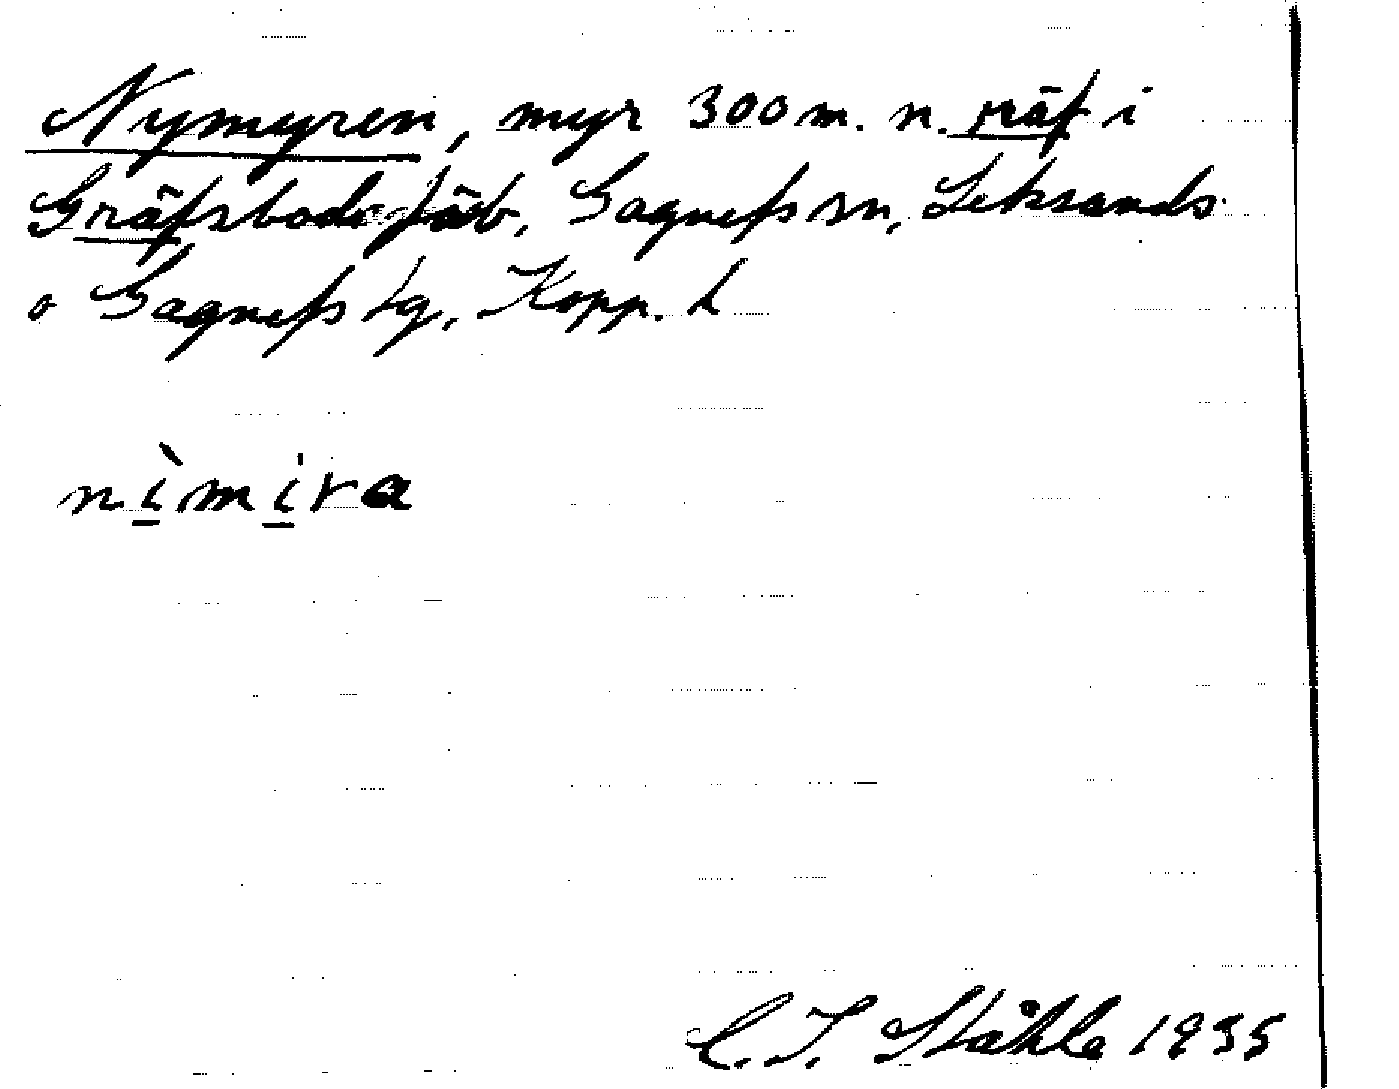 Nymyren, myr 300 m. n. räf i
Gräfsbodo fäb, Gagnefs sn, Leksands
o Gagnefs tg, Kopp. L
nìmira
C. I. Ståhle 1935